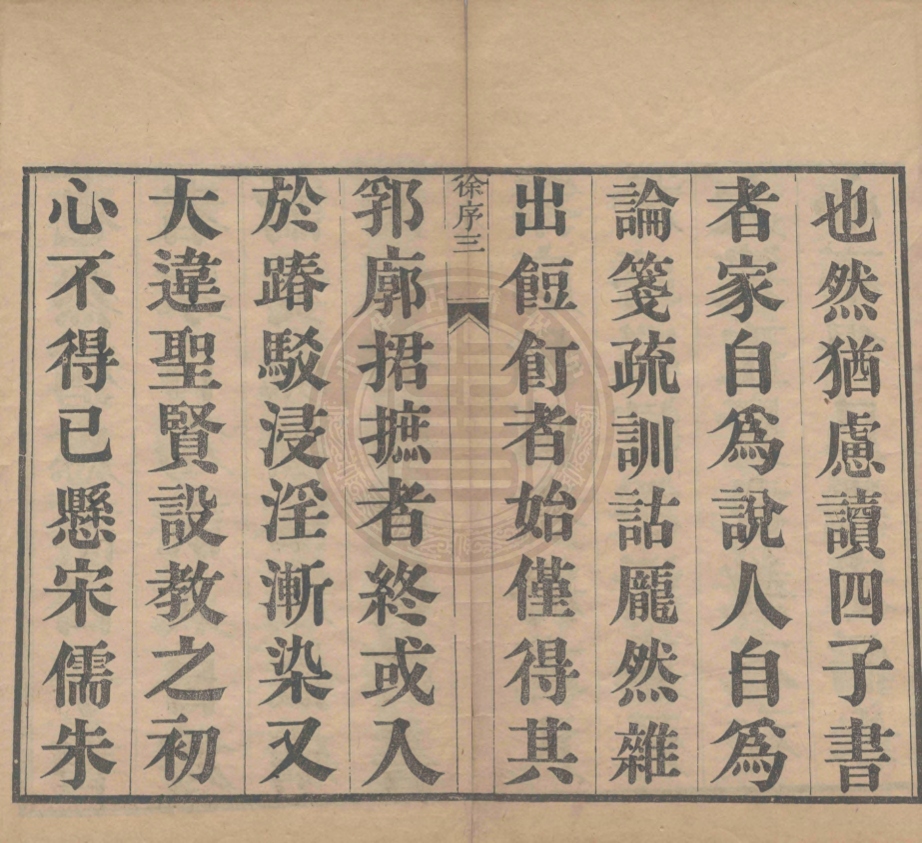 也然猶慮讀四子書
者家自爲說人自爲
論箋疏訓詁厖然雜
出餖飣者始僅得其
徐序三
郛廓捃摭者終或入
於踳駁浸淫漸染又
大違聖賢設教之初
心不得已懸宋儒朱